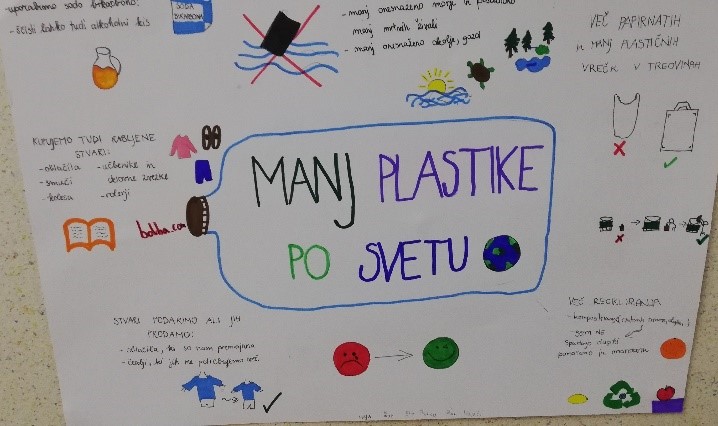 uporabljamo sodo bikarbono.
- čisti lahko tudi alkoholni kis
SODA
BIKARBONA
- manj onesnaženo morje in
manj mrtvih živali
- manj onesnaženo okolje, gozd
VEČ PAPIRNATIH
in MANJ PLASTIČNIH
VREČK V TRGOVINAH
KUPUJEMO TUDI RABLJENE
STVARI:
- oblačila - učbenike in
- smuči delovne zvezke
- kolesa - rolerji
bolha.com
MANJ PLASTIKE
PO SVETU
STVARI PODARIMO ALI JIH
PRODAMO:
- oblačila, ki so nam premajhna
- čevlji, ki jih ne potrebujemo več.
VEČ RECIKLIRANJA
- kompostiranje